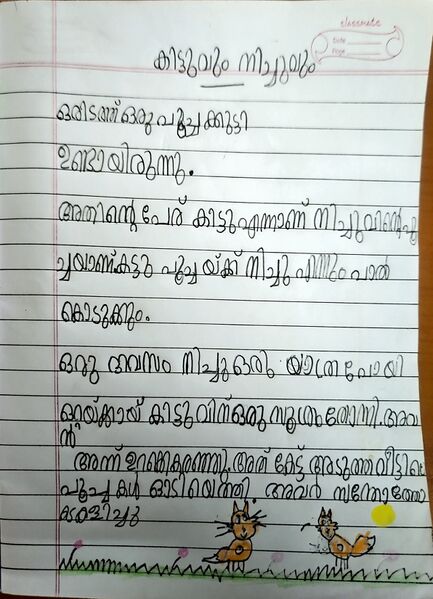 classmate
Date
Page
കിട്ടുവും നിച്ചുവും
ഒരിടത്ത് ഒരു പൂച്ചക്കുട്ടി
ഉണ്ടായിരുന്നു.
അതിന്റെ പേര് കിട്ടു എന്നാണ് നിച്ചുവിന്റെ പൂ
ച്ചയാണ് കിട്ടു പൂച്ച യ്ക്ക് നിച്ചു എന്നും പാൽ
കൊടുക്കും.
ഒരു ദിവസം നിച്ചു ഒരു യാത്ര പോയി
ഒറ്റയ്ക്കായ് കിട്ടു വിന് ഒരു സൂത്രം തോന്നി. അവ
ൻ
അന്ന് ഉറക്കെ കരഞ്ഞു. അത് കേട്ട് അടുത്ത വീട്ടിലെ
പൂച്ചകൾ ഓടിയെത്തി. അവർ സന്തോത്തോ
കളിച്ചു